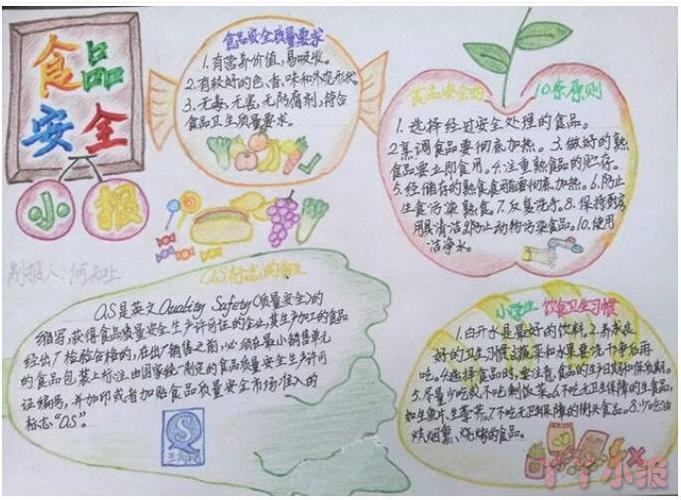 食品
安全
小报
制报人:何
食品安全质量要求
1.有营养价值,易吸收。
2.有较好的色、香、味和外观形状。
3.无毒,无害,无防腐剂,符合
食品卫生质量要求。
食品安全的 10条原则
1.选择经过安全处理的食品。
2.烹调食品要彻底加热。3.做好的熟
食品要立即食用。4.注重熟食品的贮存。
5.经储存的熟食食用前要彻底加热。6.防止
生食污染熟食。7.反复洗手。8.保持厨房
用具清洁。9.防止动物污染食品。10.使用
洁净水。
QS标志的
QS是英文Quality Safety(质量安全)的
缩写,获得食品质量安全生产许可证的企业,其生产加工的食品
经出厂检验合格的,在出厂销售之前,必须在最小销售单元
的食品包装上标注由国家统一制定的食品质量安全生产许可
证编号,并加印或者加贴食品质量安全市场准入的
标志“QS”。
小学生 饮食卫生习惯
1.白开水是最好的饮料。2.养成良
好的卫生习惯。3.蔬菜和水果要洗干净后再
吃。4.选择食品时,要注意食品的生产日期和保质期。
5.尽量少吃或不吃剩饭菜。6.不吃无卫生保障的生食食品,
如生鱼片,生 7.不吃无卫生保障的街头食品。8.少吃油
炸、烟熏、烧烤的食品。
小报